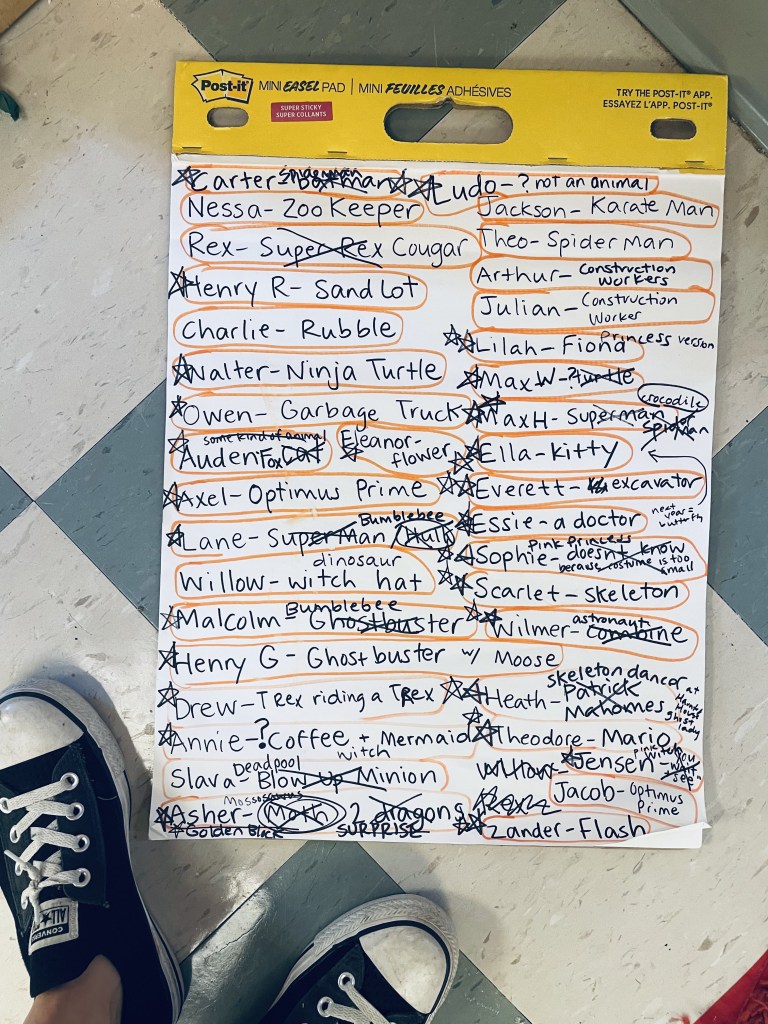 Post-it® MINI EASEL PAD | MINI FEUILLES ADHÉSIVES
SUPER STICKY
SUPER COLLANTS
TRY THE POST-IT® APP.
ESSAYEZ L'APP. POST-IT®
Carter- Spiderman
Nessa- Zoo Keeper
Rex- Super Rex Cougar
Henry R- Sandlot
Charlie- Rubble
Walter- Ninja Turtle
Owen- Garbage Truck
some kind of animal
Auden Fox Cat
Eleanor- flower
Axel- Optimus Prime
Bumblebee
Lane- SuperMan / Hulk
dinosaur
Willow- witch hat
Bumblebee
Malcolm- Ghostbuster
Henry G- Ghostbuster w/ Moose
Drew- T Rex riding a T Rex
Annie-? Coffee + Mermaid
witch
Deadpool
Slava- Blow Up Minion
Mossosaurus
Asher- Moth 2 dragons
Golden Black SURPRISE
Ludo- ? not an animal
Jackson- Karate Man
Theo- Spider Man
Arthur- Construction
Workers
Julian- Construction
Worker
Lilah- Fiona Princess version
Max W-? turtle
crocodile
Max H- Superman or
Spiderman
Ella- kitty
Everett- excavator
Essie- a doctor
next year=
Pink Princess
Sophie- doesn't know
because costume is too
small
Scarlet- skeleton
astronaut
Wilmer- combine
skeleton dancer at
Heath- Patrick
Mahomes
House
ghost
lady
Theodore- Mario
pink witch
Willow- Jensen- "You
wait
see"
Rex
Jacob- Optimus
Prime
Zander- Flash
CONVERSE
ALL STAR